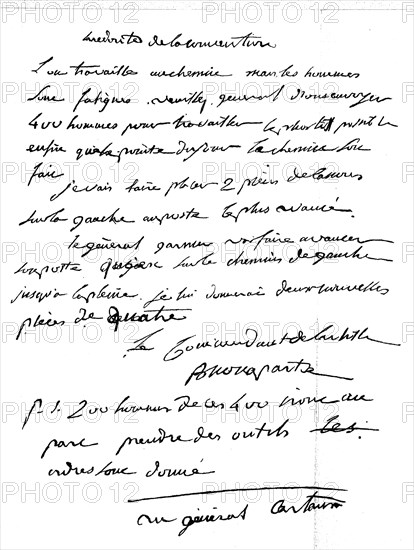 la droite de la convention
L'on travaille au chemin mais les hommes
sont fatigués. veuillez general d'ons envoyer
400 hommes pour travailler le plus tôt
enfin qu'a la pointe du jour le chemin soit
fait
je vais faire placer 2 pièces de
sur la gauche au poste le plus avancé.
le général va faire avancer
son poste sur le chemin de gauche
jusqu'a la pleine. je lui donnerai deux nouvelles
pièces de quatre
Le Commandant de l'artill
Buonaparte
p. s. 200 hommes de ces 400 iront au
parc prendre des outils les
ordres sont donné
au général Carteaux
PHOTO 12